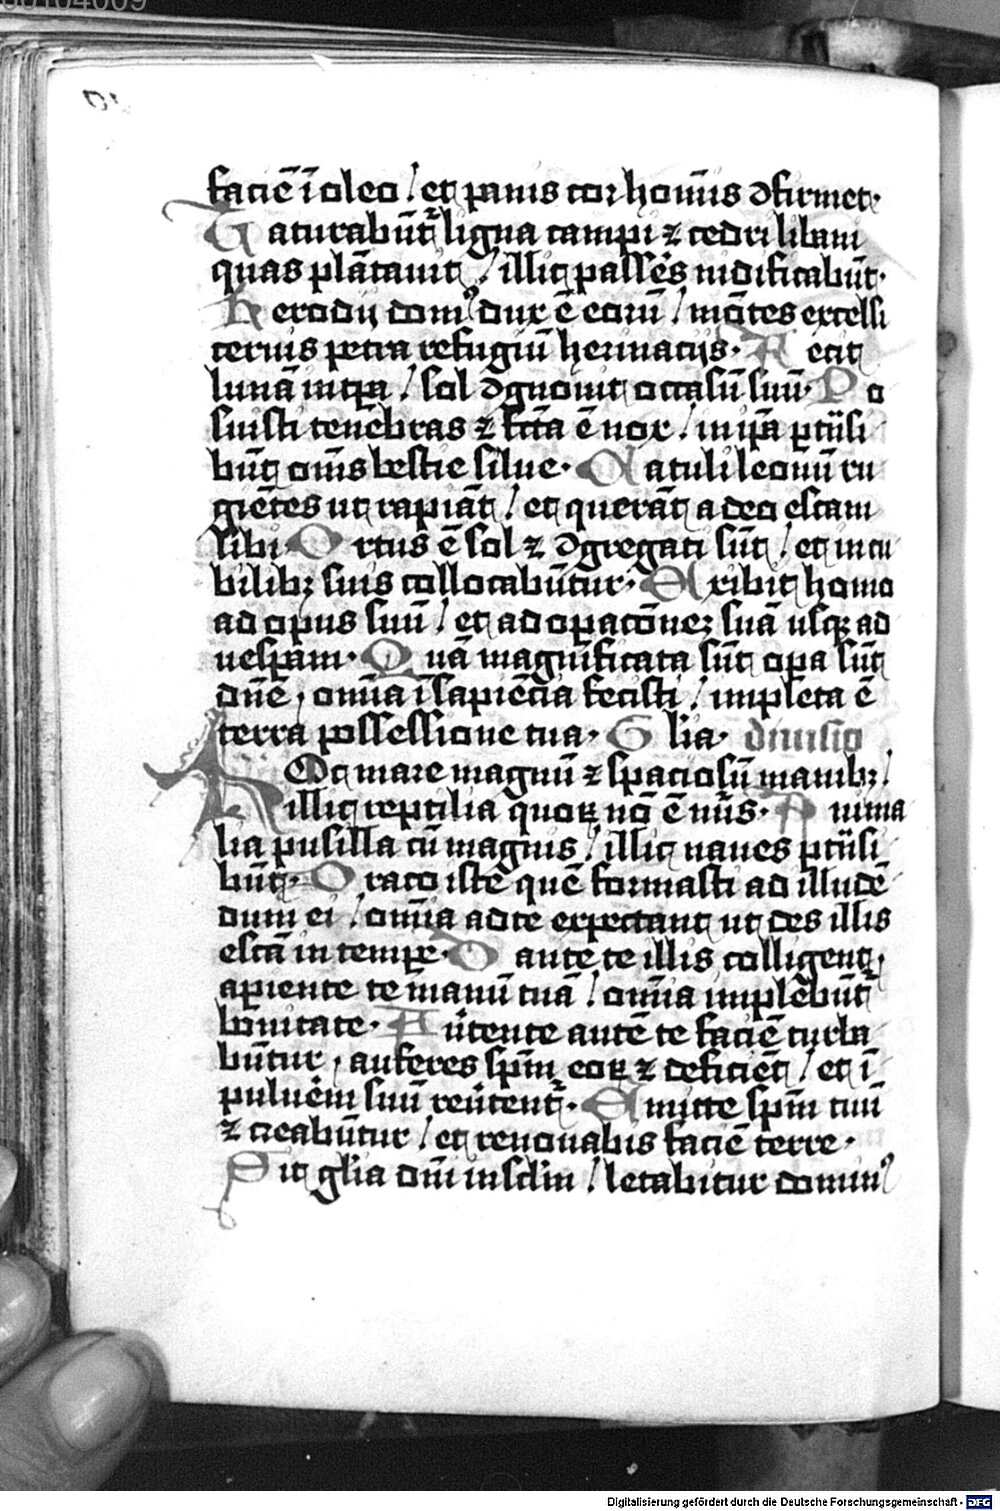 faciē ī oleo / et panis cor homīs ꝯfirmet.
Saturabūtr ligna campi ⁊ cedri libani
quas plātauit / illic passēs nidificabūt.
Herodij domꝰ dux ē eorū / mōtes excelsi
ceruis petra refugiū herinacijs. Fecit
lunā in tꝑa / sol ꝯgnouit occasū suū. Po
suisti tenebras ⁊ fcā ē nox / in ip̄a ꝑtrāsi
būt om̄s bestie silue. Catuli leonū ru
giētes ut rapiāt / et querāt a deo escam
sibi. Ortus ē sol ⁊ ꝯgregati sūt / et in cu
bilibꝫ suis collocabūtur. Exibit homo
ad opus suū / et ad oꝑacōneꝫ suā usqꝫ ad
uesꝑam. Quā magnificata sūt oꝑa sūt
dn̄e, om̄ia ī sapiēcia fecisti / impleta ē
terra possessione tua. Glia. diuisio
HOc mare magnū ⁊ spaciosū manibꝫ /
illic reptilia quoꝝ nō ē nūs. Anima
lia pusilla cū magnis / illic naues ꝑtrāsi
būt. Draco iste quē formasti ad illudē
dum ei / om̄ia a dte expectant ut des illis
escā in tempe. Dante te illis colligent,
aperiente te manū tuā / om̄ia implebūtr
bonitate. Auertente autē te faciē turba
būtur, auferes spm̄ eoꝝ ⁊ deficiēt / et ī
puluerem suū reuertentr. Emitte spm̄ tuū
⁊ creabūtur / et renouabis faciē terre.
Sit glia dn̄i in sclm̄ / letabitur dominꝰ
Digitalisierung gefördert durch die Deutsche Forschungsgemeinschaft - DFG